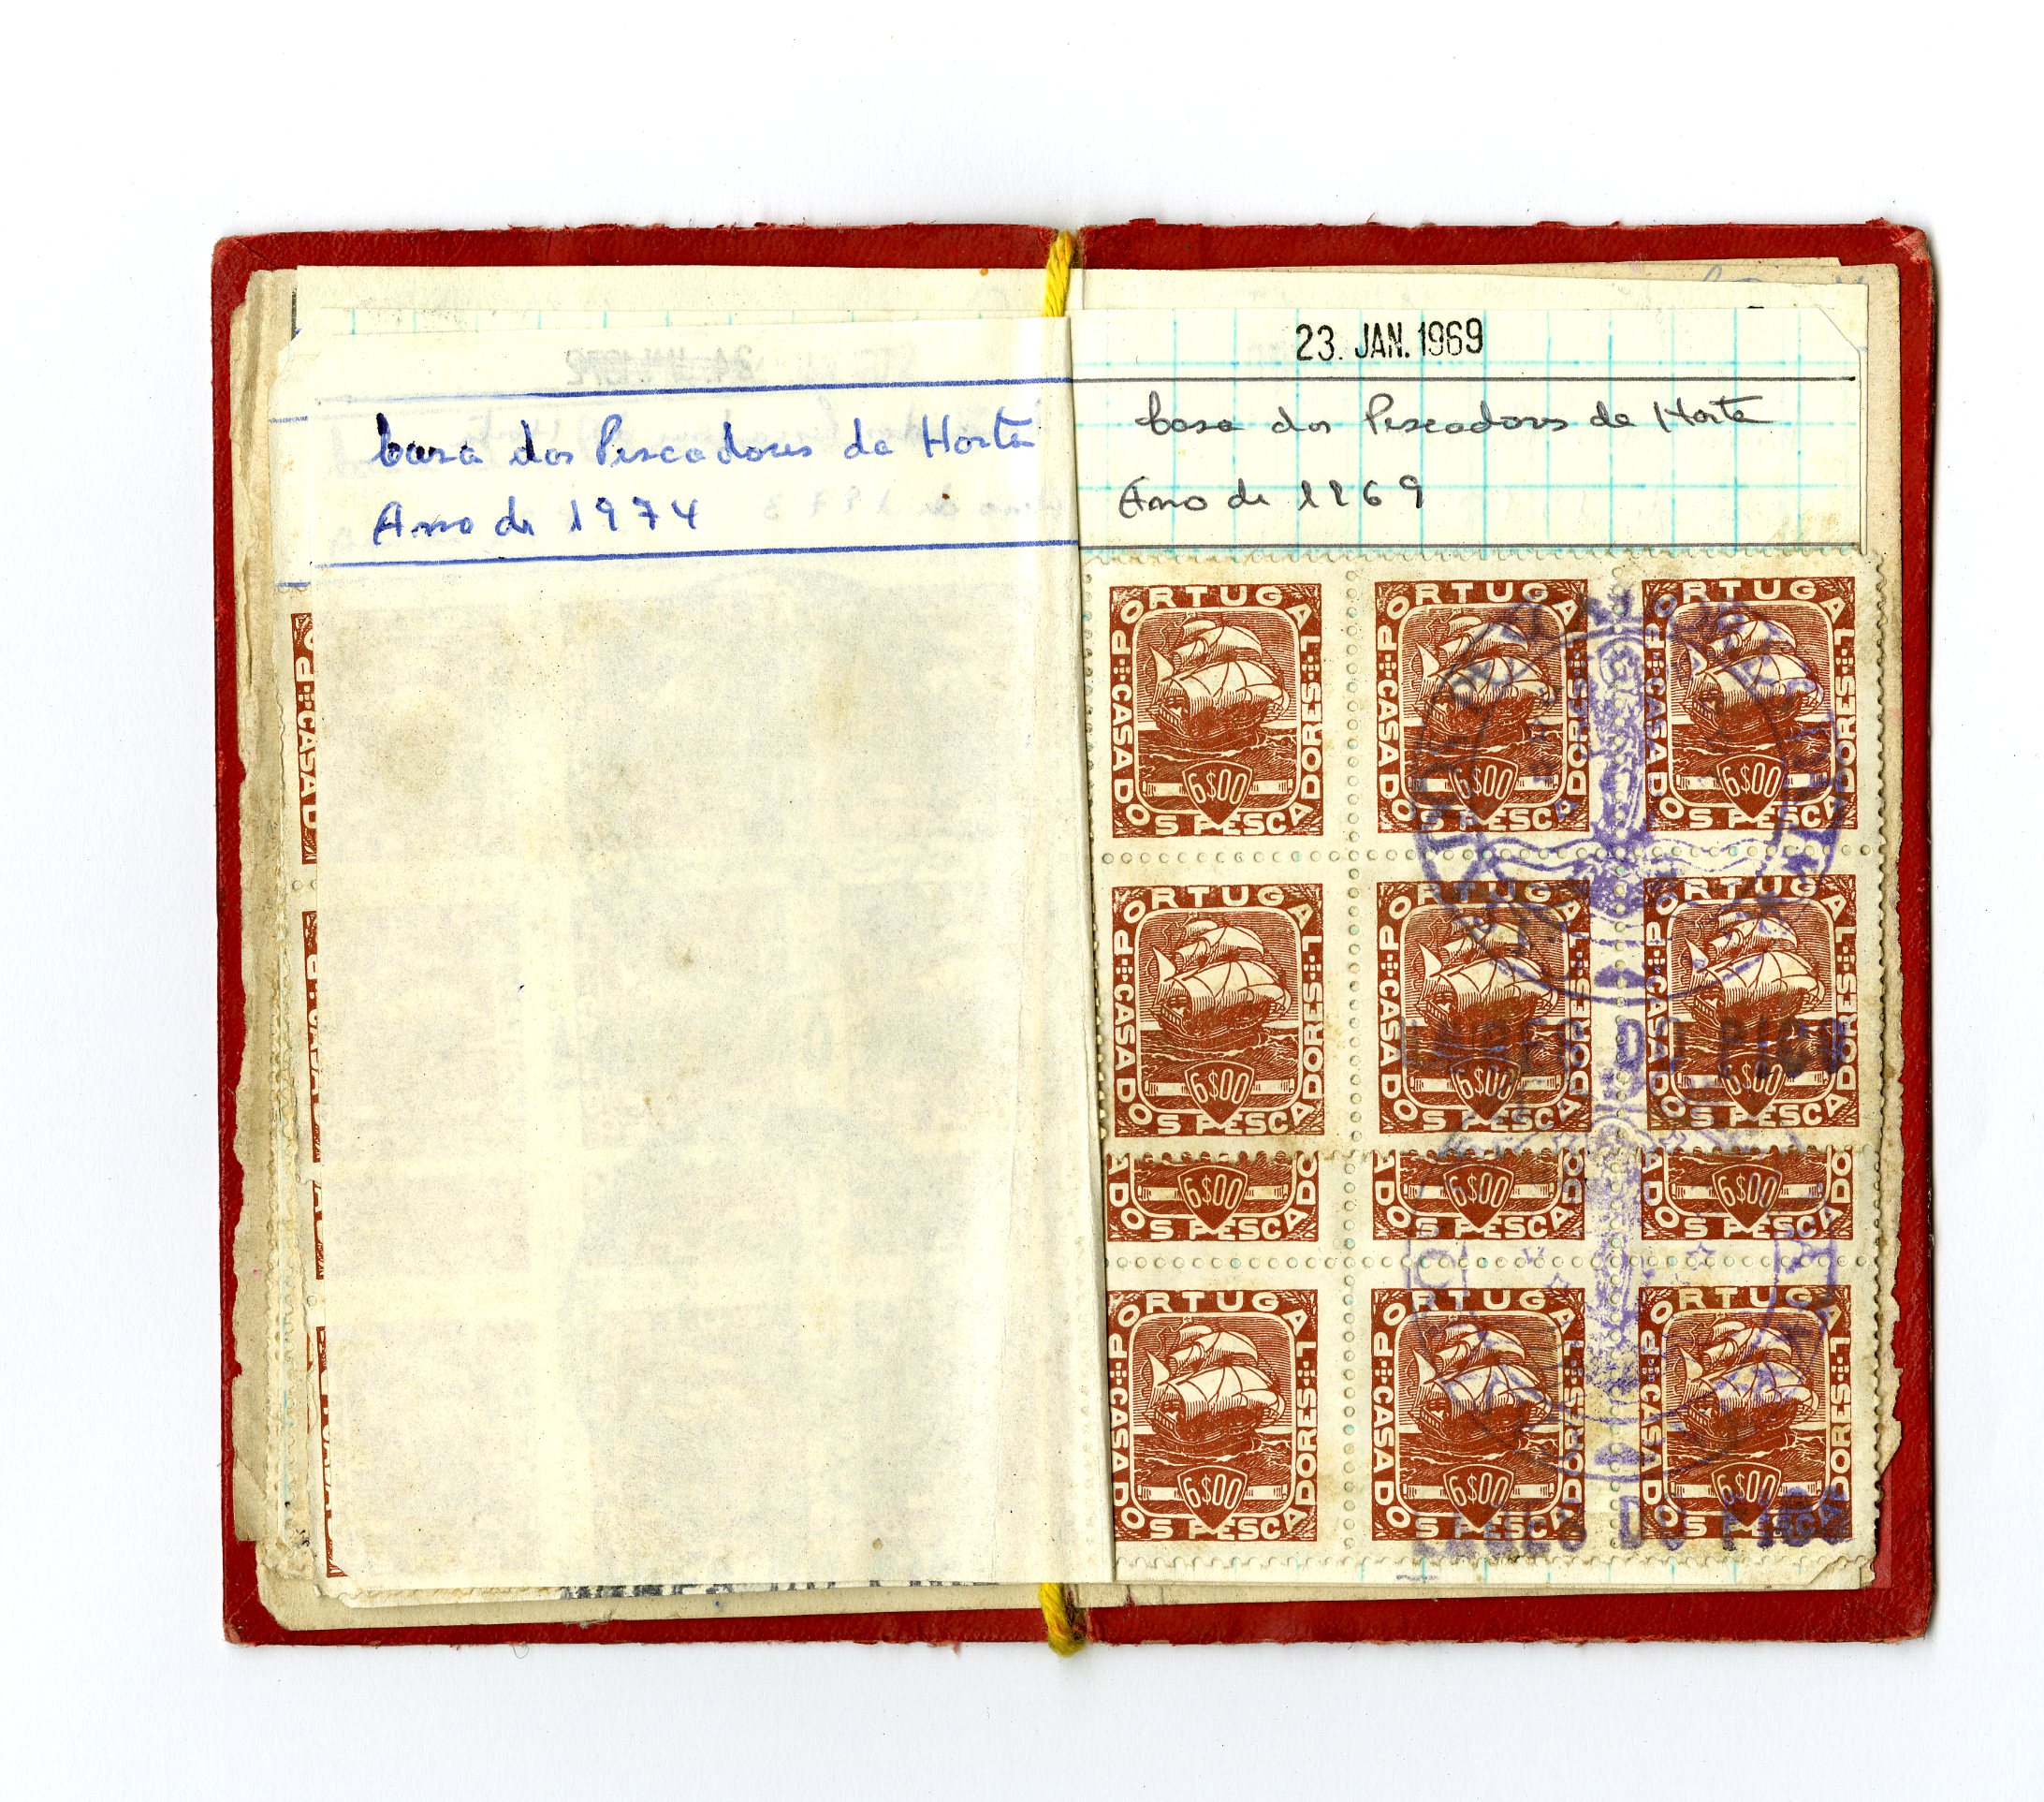 Casa dos Pescadores da Horta
Ano de 1974
23. JAN. 1969
Casa dos Pescadores da Horta
Ano de 1969
PORTUGAL CASA DOS PESCADORES 6$00
PORTUGAL CASA DOS PESCADORES 6$00
PORTUGAL CASA DOS PESCADORES 6$00
PORTUGAL CASA DOS PESCADORES 6$00
PORTUGAL CASA DOS PESCADORES 6$00
PORTUGAL CASA DOS PESCADORES 6$00
DO PICO
A DOS PESCADO 6$00
A DOS PESCADO 6$00
A DOS PESCADO 6$00
PORTUGAL CASA DOS PESCADORES 6$00
PORTUGAL CASA DOS PESCADORES 6$00
PORTUGAL CASA DOS PESCADORES 6$00
LAGES DO PICO